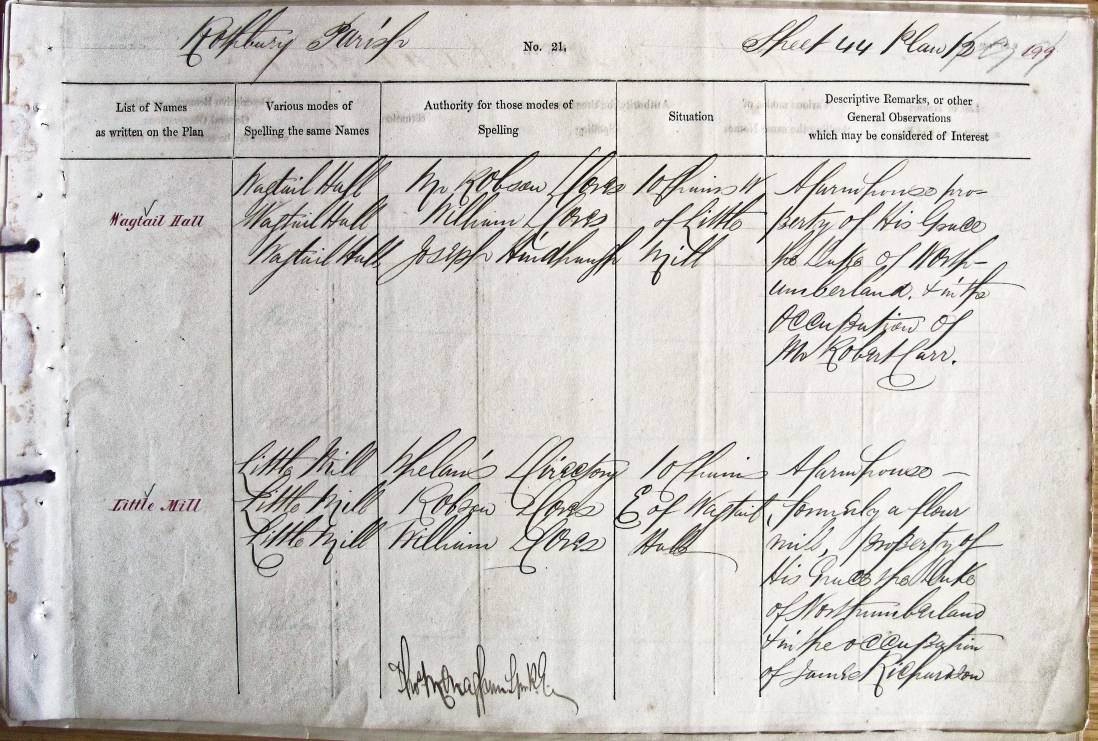 Rothbury Parish No. 21. Sheet 44 Plan 13 199
List of Names
as written on the Plan
Various modes of
Spelling the same Names
Authority for those modes of
Spelling
Situation
Descriptive Remarks, or other
General Observations
which may be considered of Interest
Wagtail Hall
Wagtail Hall
Wagtail Hall
Wagtail Hall
Mr Robson
William
Joseph Hindhaugh
10 Chains W
of Little
Mill
A farmhouse pro-
perty of His Grace
the Duke of North-
umberland. & in the
occupation of
Mr Robert Carr.
Little Mill
Little Mill
Little Mill
Little Mill
Whelan's Directory
Robson
William
10 Chains
E of Wagtail
Hall
A farmhouse —
formerly a flour
mill, property of
His Grace the Duke
of Northumberland
& in the occupation
of James Richardson